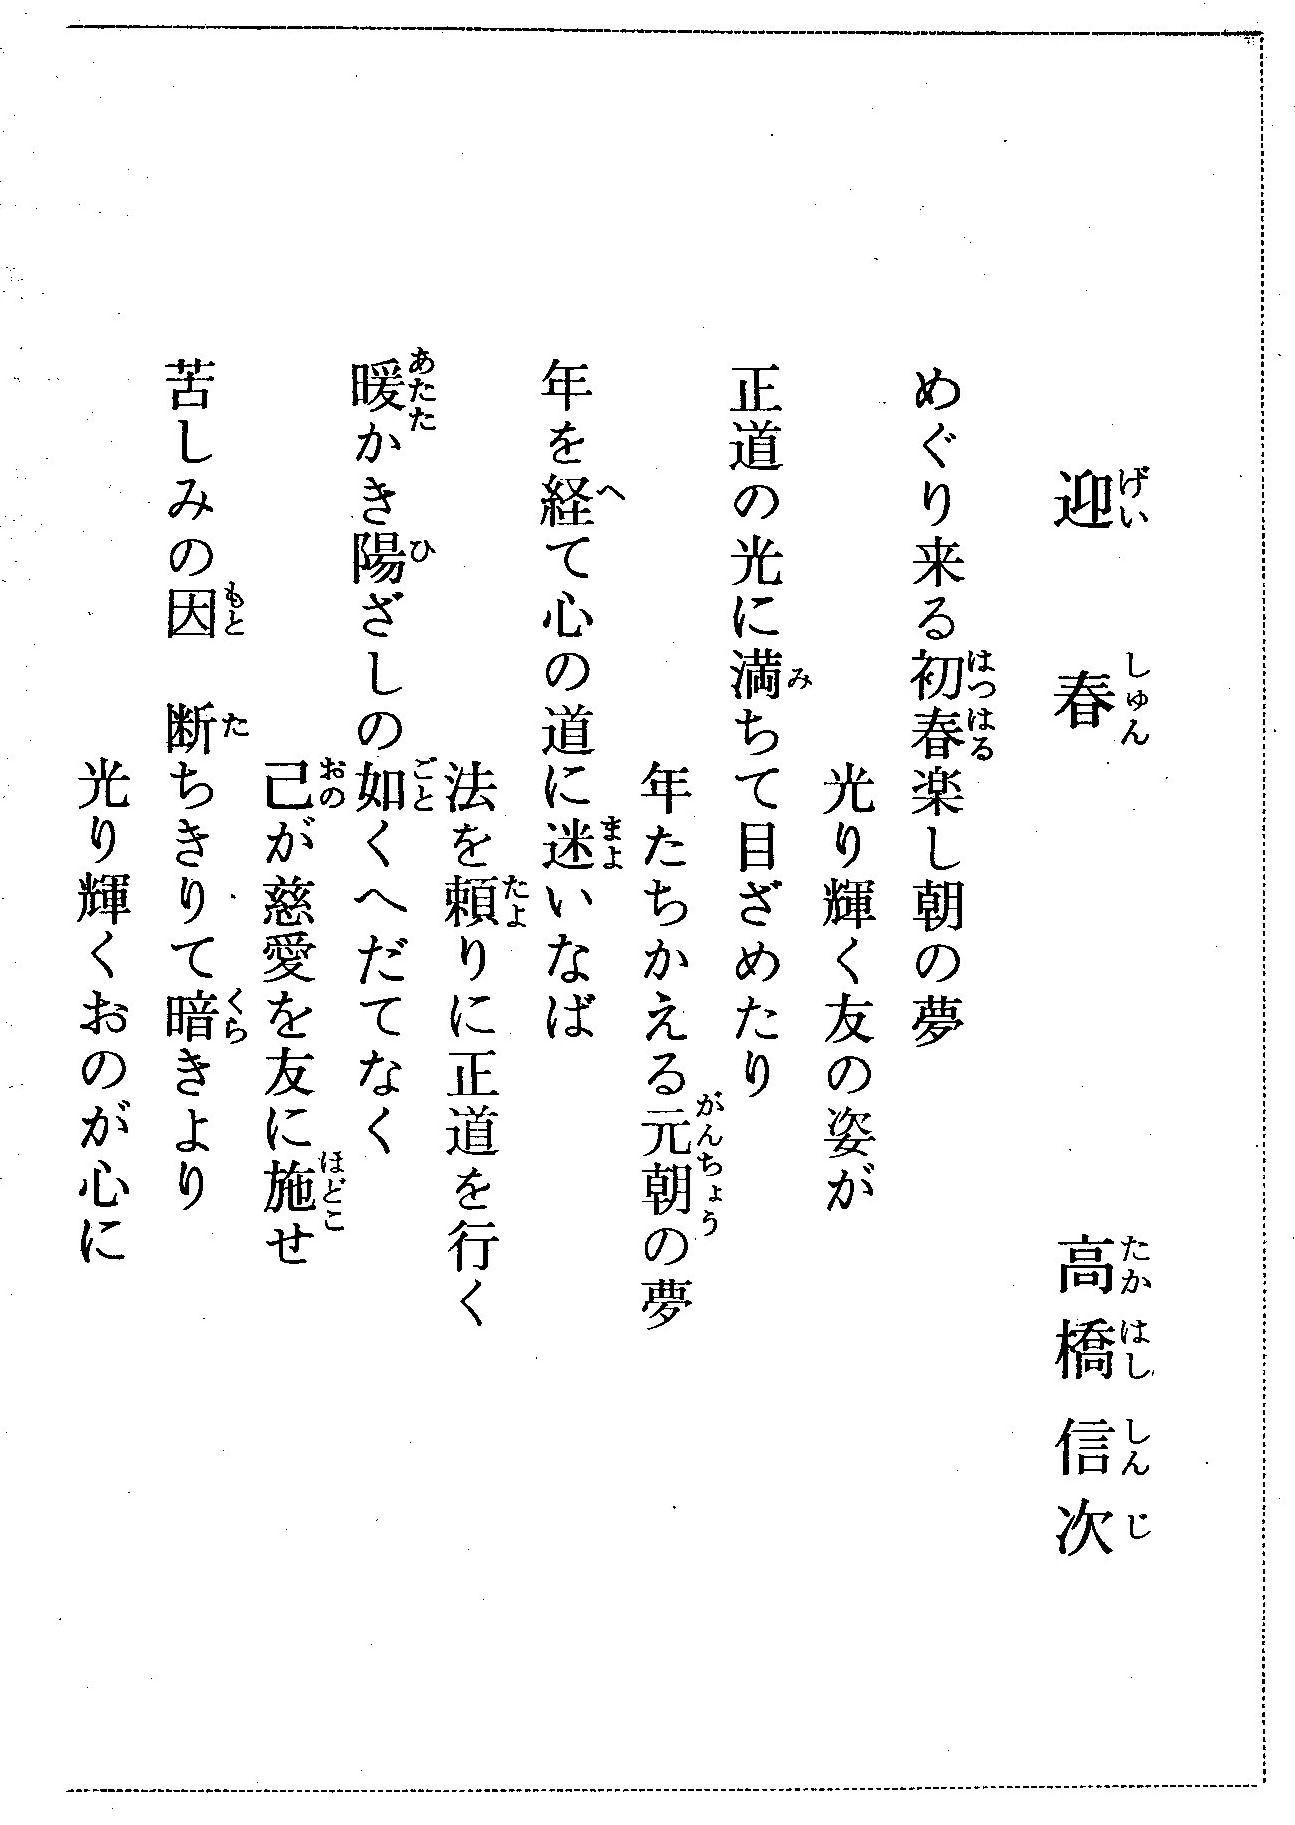 迎春　高橋信次
げいしゅん　たかはししんじ
めぐり来る初春楽し朝の夢
はつはる
光り輝く友の姿が
正道の光に満ちて目ざめたり
み
年たちかえる元朝の夢
がんちょう
年を経て心の道に迷いなば
へ　まよ
法を頼りに正道を行く
たよ
暖かき陽ざしの如くへだてなく
あたた　ひ　ごと
己が慈愛を友に施せ
おの　ほどこ
苦しみの因　断ちきりて暗きより
もと　た　くら
光り輝くおのが心に